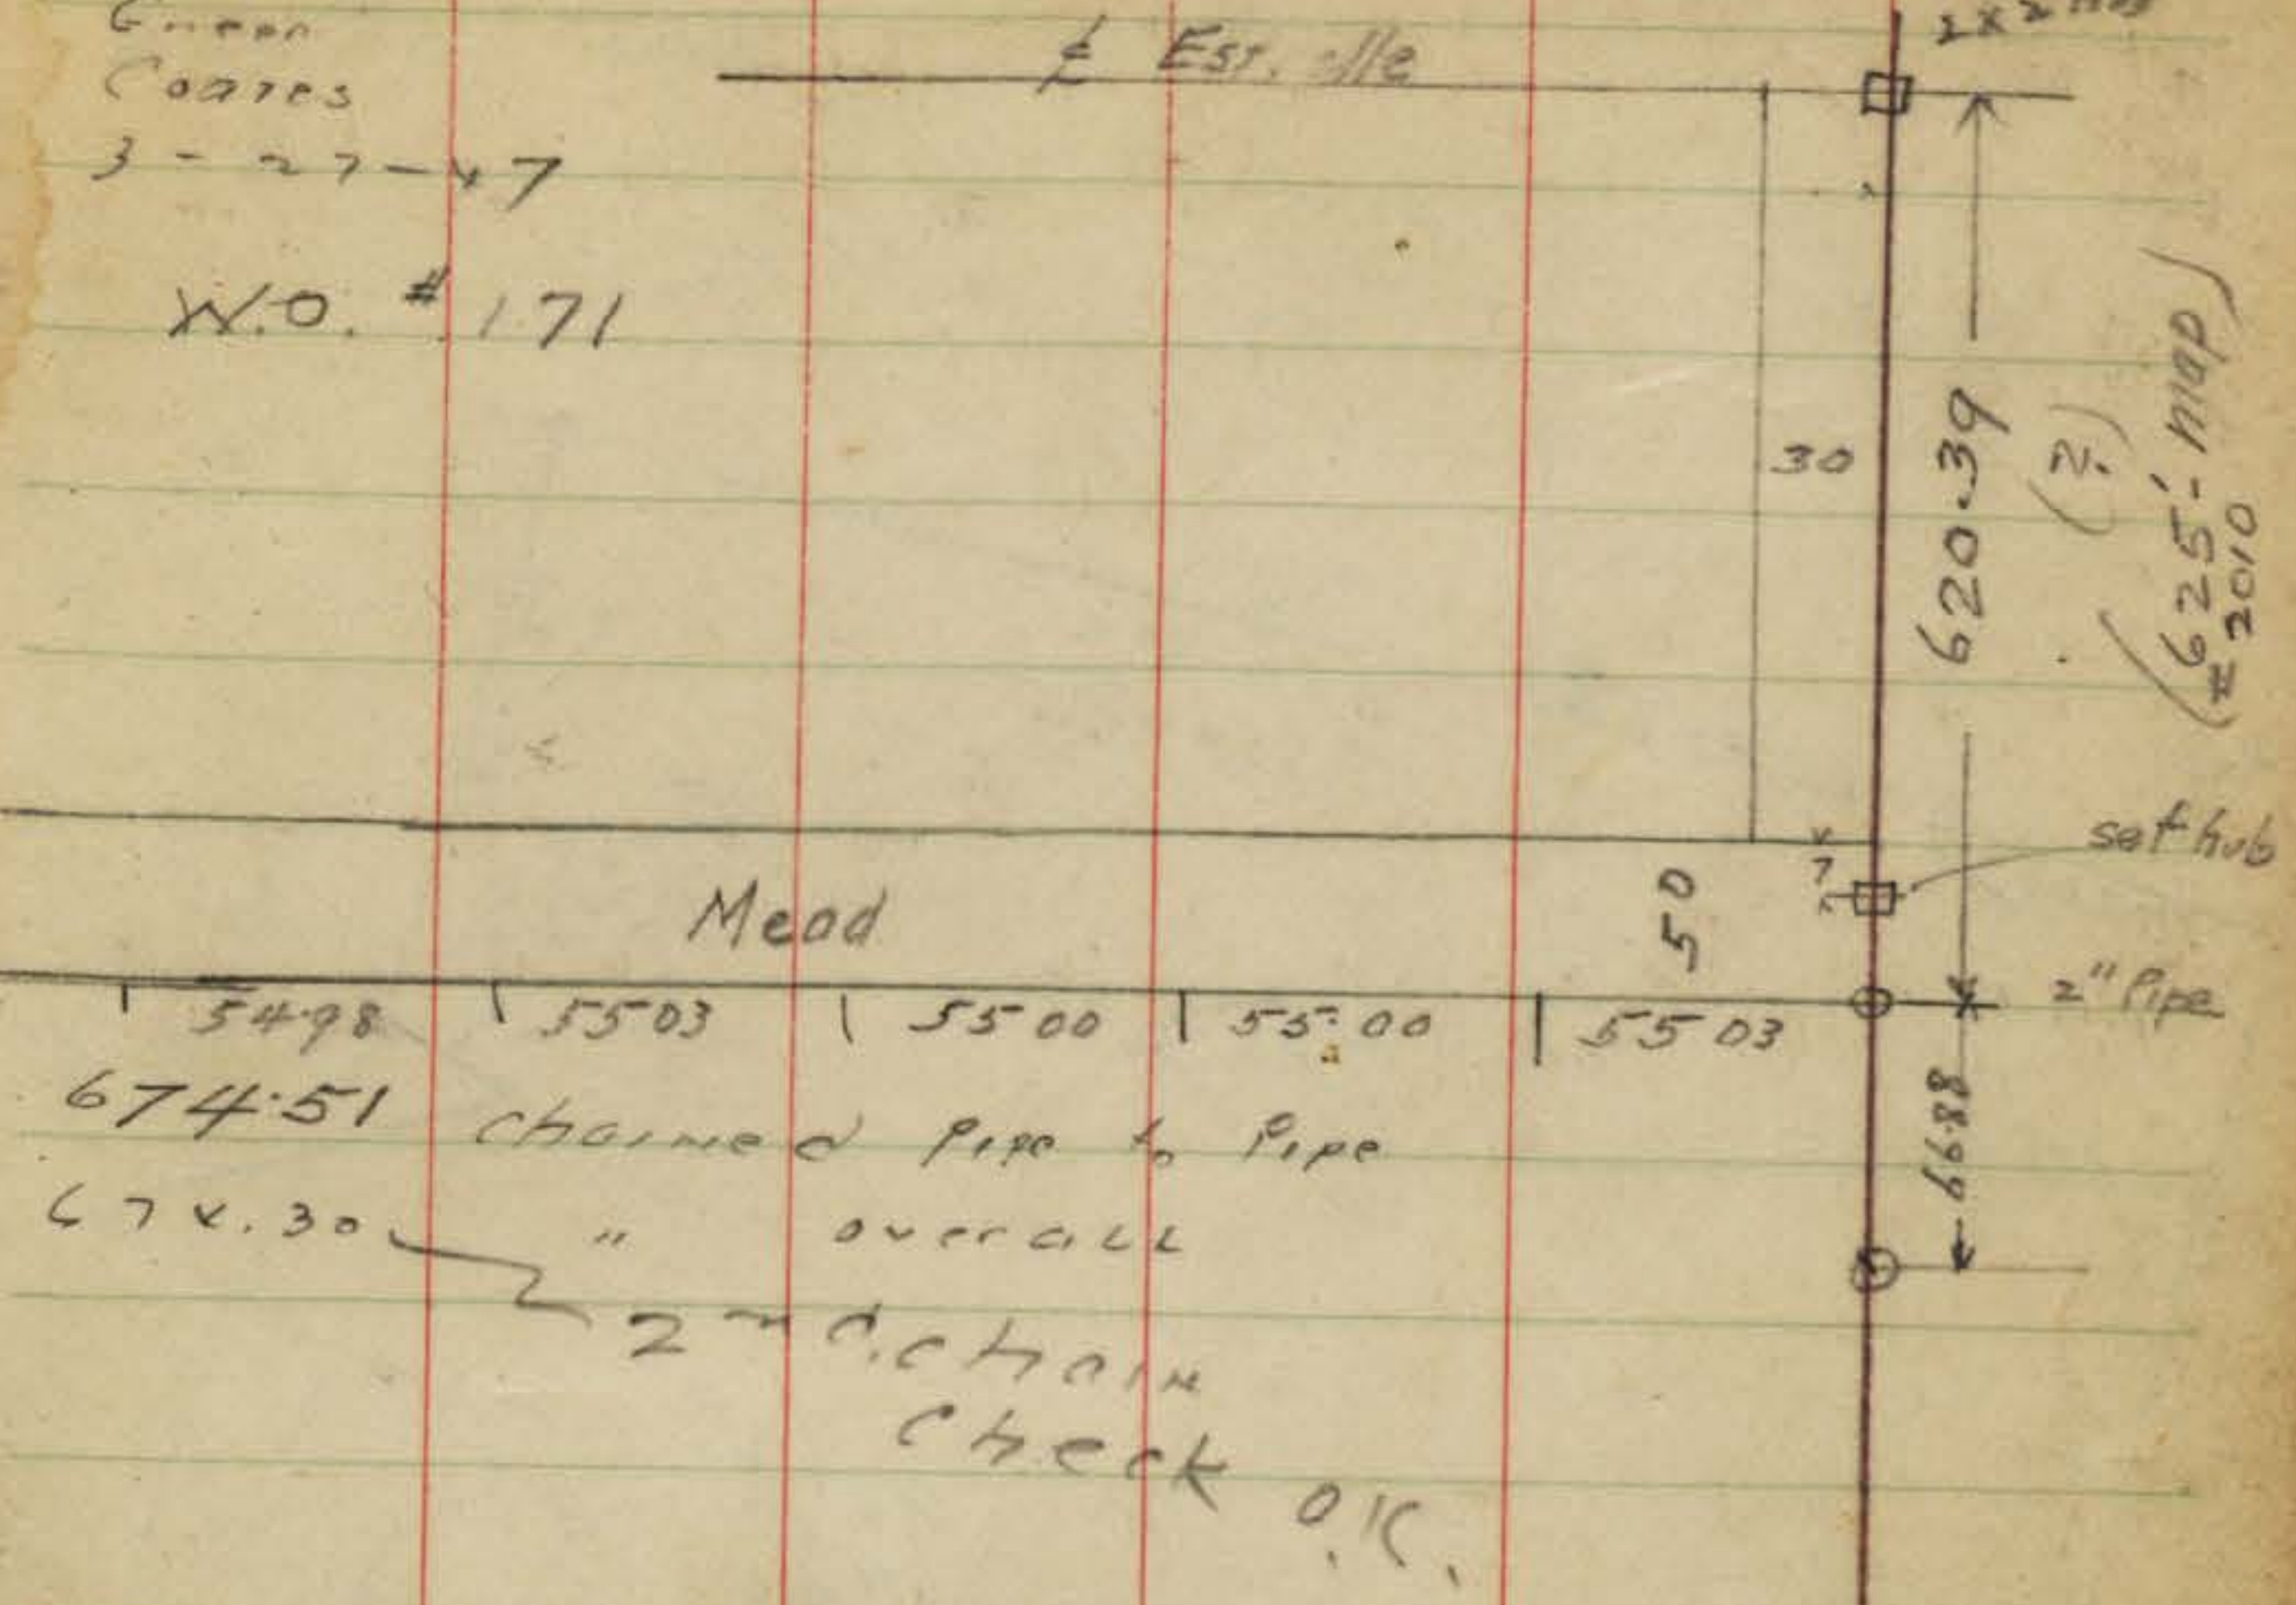 Coates
3-27-47
W.O. # 171
℄ Est. elle
2x2
30
620.39
(?)
(625'- map
# 2010)
set hub
7
50
Mead
2" Pipe
54.98 55 03 55 00 55.00 55 03
66.88
674.51 chained Pipe to Pipe
674.30 " overall
2nd. chain
check
O.K.